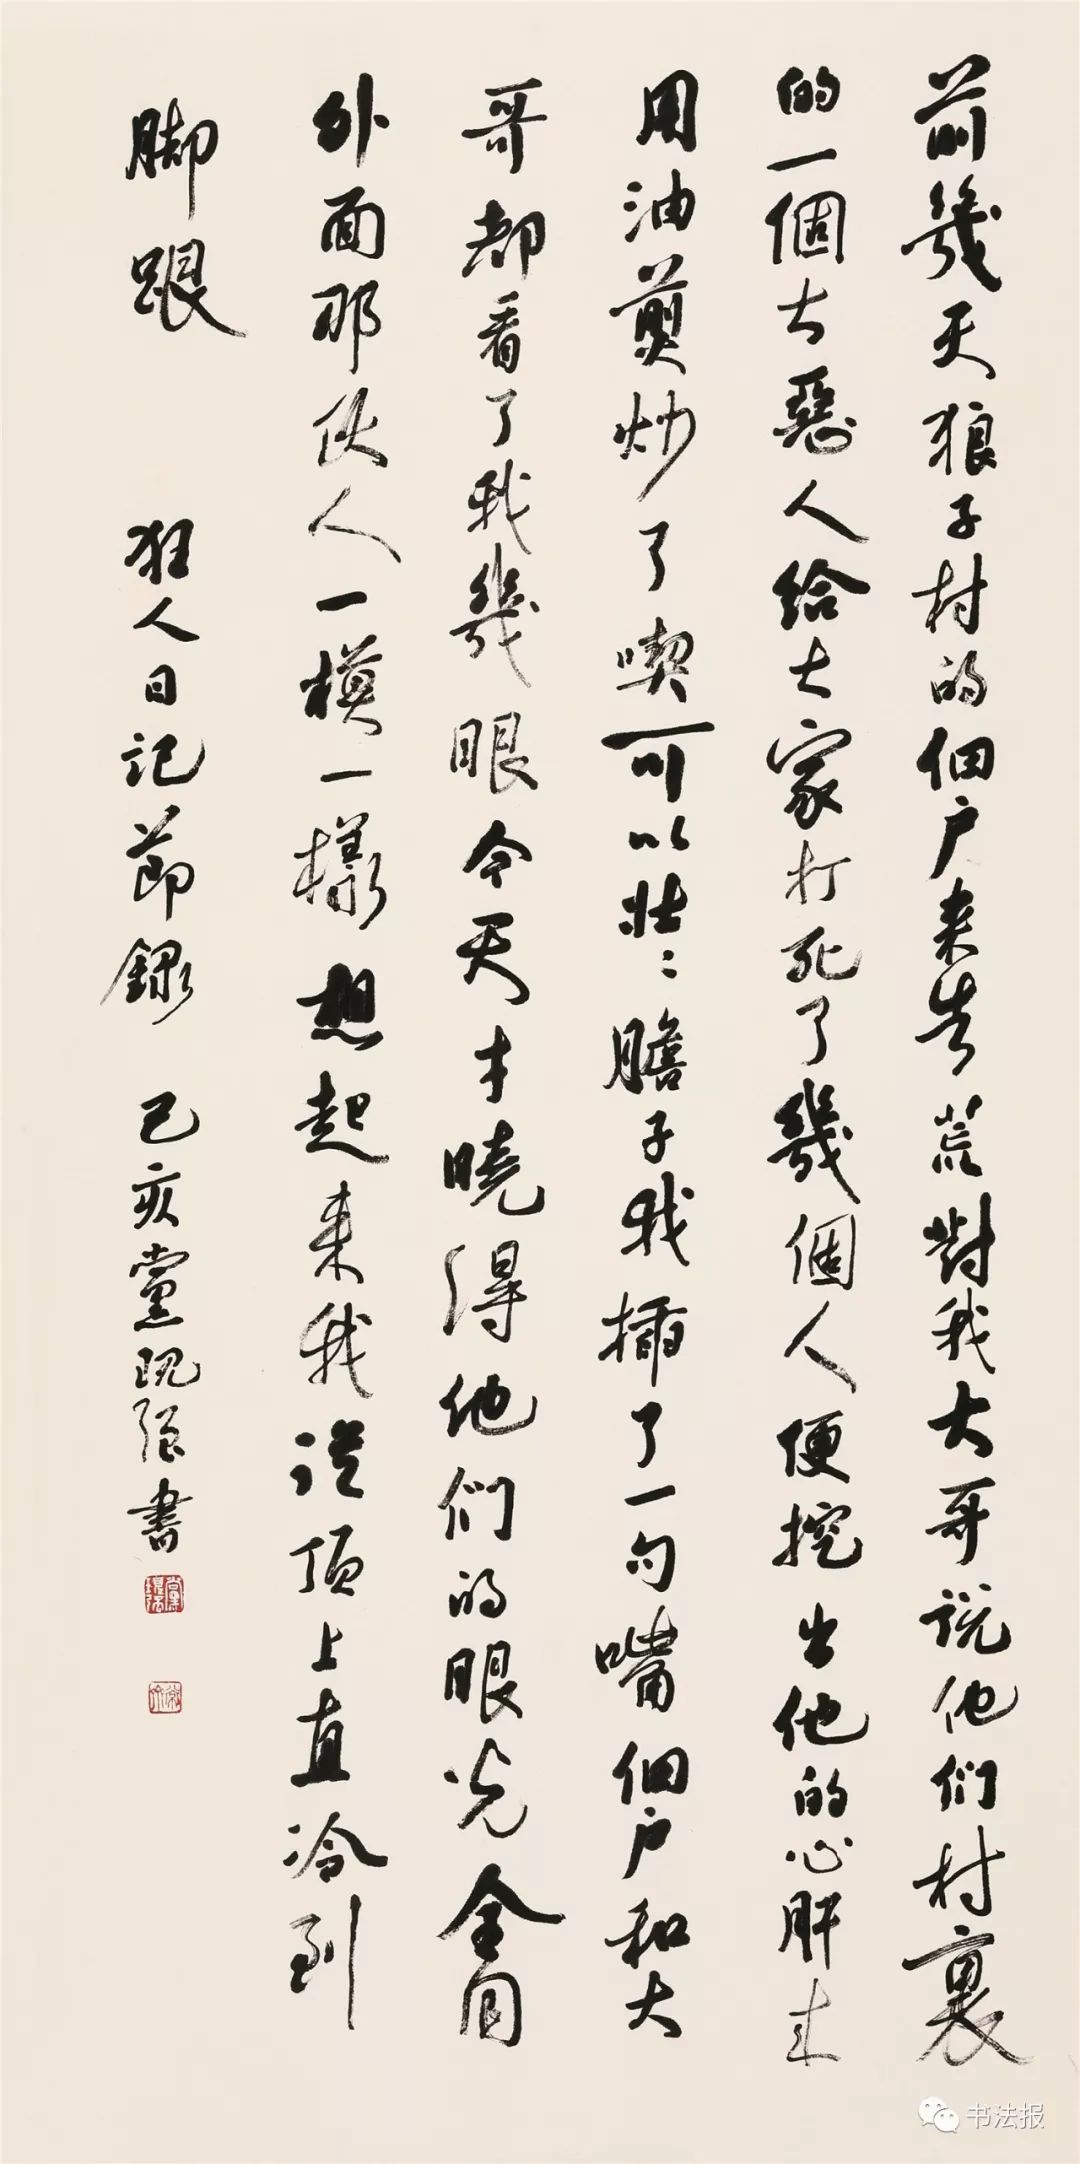 前幾天狼子村的佃户来告荒對我大哥説他们村裏
的一個大惡人給大家打死了幾個人便挖出他的心肝来
用油煎炒了喫可以壮〻膽子我插了一句嘴佃户和大
哥都看了我幾眼今天才曉得他们的眼光全同
外面那伙人一模一樣想起来我從頂上直冷到
脚跟
狂人日記節録
己亥黨現強書
书法报